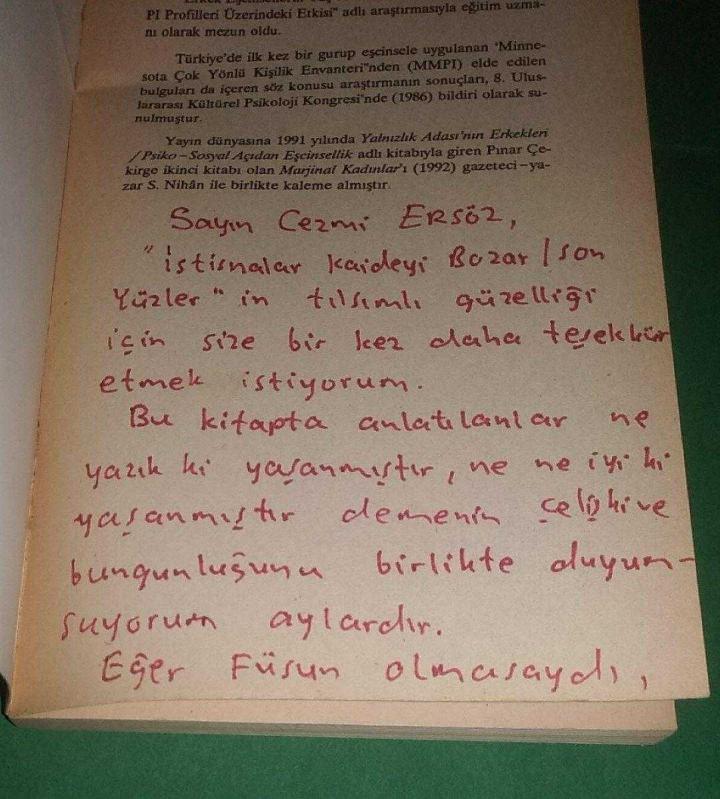 PI Profilleri Üzerindeki Etkisi" adlı araştırmasıyla eğitim uzma-
nı olarak mezun oldu.
Türkiye'de ilk kez bir gurup eşcinsele uygulanan 'Minne-
sota Çok Yönlü Kişilik Envanteri"nden (MMPI) elde edilen
bulguları da içeren söz konusu araştırmanın sonuçları, 8. Ulus-
lararası Kültürel Psikoloji Kongresi'nde (1986) bildiri olarak su-
nulmuştur.
Yayın dünyasına 1991 yılında Yalnızlık Adası'nın Erkekleri
/Psiko-Sosyal Açıdan Eşcinsellik adlı kitabıyla giren Pınar Çe-
kirge ikinci kitabı olan Marjinal Kadınlar'ı (1992) gazeteci-ya-
zar S. Nihân ile birlikte kaleme almıştır.
Sayın Cezmi ERSÖZ,
"istisnalar kaideyi Bozar / son
Yüzler" in tılsımlı güzelliği
için size bir kez daha teşekkür
etmek istiyorum.
Bu kitapta anlatılanlar ne
yazık ki yaşanmıştır, ne ne iyi ki
yaşanmıştır demenin çelişki ve
bungunluğunu birlikte duyum-
suyorum aylardır.
Eğer Füsun olmasaydı,